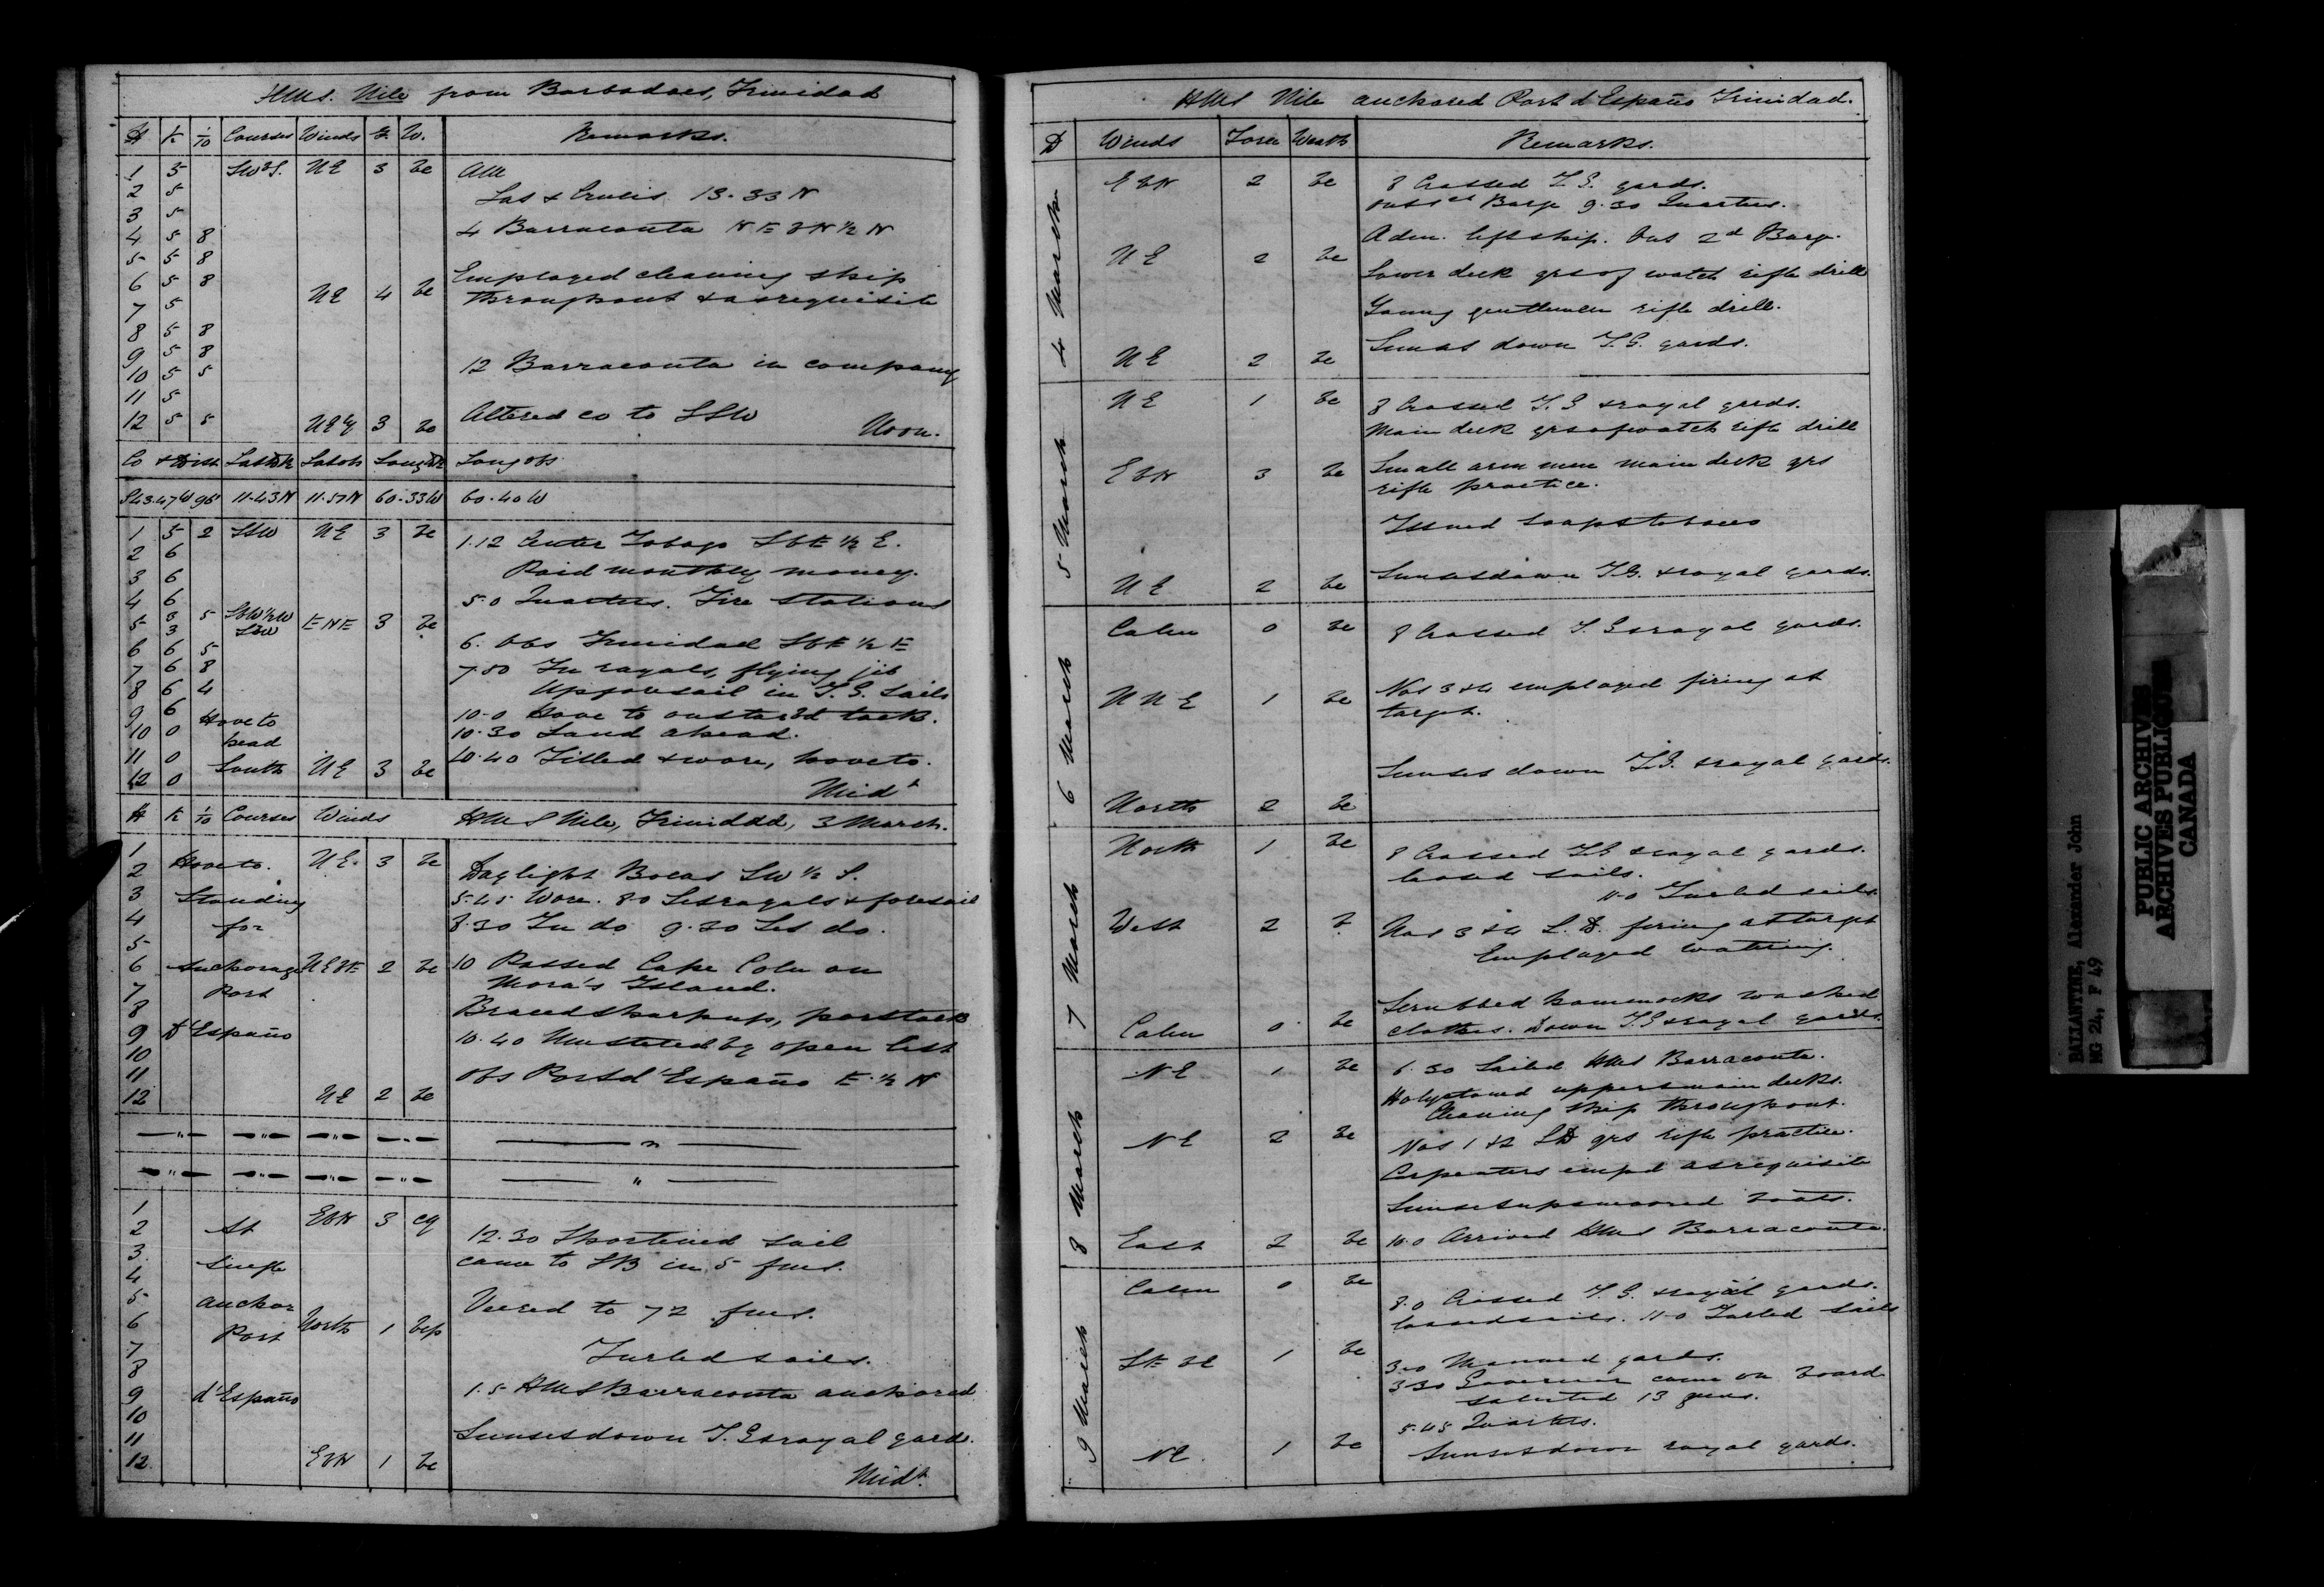 HMS. Nile from Barbadoes, Trinidad
H K 1/10 Courses Winds F. W. Remarks.
1 5 SWbS. NE 3 bc AM
2 5 Las & Crucis 13.33 N
3 5
4 5 8 4 Barraconta NEbN½N
5 5 8
6 5 8 NE 4 bc Employed cleaning ship
7 5 throughout & as requisite
8 5 8
9 5 8
10 5 5 12 Barraconta in company
11 5
12 5 5 NEly 3 bc Altered co to SSW Noon.
Co & Dist Lat DR Lat obs Long DR Long obs
S43.47W 96' 11.43N 11.57N 60.33W 60.40W
1 5 2 SSW NE 3 bc 1.12 Center Tobago SbE ½ E.
2 6 Paid monthly money.
3 6
4 6 5.0 Quarters. Fire stations
5 3 3 5 SbW½W SSW ENE 3 bc
6 6 5 6. Obs Trinidad SbE ½ E
7 6 8 7.50 In royals, flying jib
8 6 4 Up foresail in T.G. Sails
9 6 Hove to 10.0 Hove to on starbd tack.
10 0 head 10.30 Land ahead.
11 0 South NE 3 bc 10.40 Filled & wore, hove to.
12 0 Midt
H K 1/10 Courses Winds HMS Nile, Trinidad, 3 March.
1
2 Hove to. NE. 3 bc Daylight Bocas SW ½ S.
3 Standing 5.45 Wore. 8.0 Set royals & foresail
4 for 8.30 In do 9.30 Set do.
5
6 Anchorage NEbE 2 bc 10 Passed Cape Coln on
7 Port Mora's Island.
8 Braced sharp up, port tack
9 D'Españo 10.40 Mustered by open list
10
11 Obs Port d'Españo E. ½ N
12 NE 2 bc
1 EbN 3 cq
2 At 12.30 Shortened sail
3 Single came to SB in 5 fms.
4
5 anchor Veered to 72 fms.
6 Port North 1 bcp
7 Furled sails.
8
9 d'Españo 1.5 HMS Barraconta anchored
10
11 Sunset down T.G & royal yards.
12 EbN 1 bc Midt.
HMS Nile anchored Port d'Españo Trinidad.
D Winds Force Weath Remarks.
4 March
EbN 2 bc 8 Crossed T.G. yards.
Out 1st Barge 9.30 Quarters.
Adm. left ship. Out 2d Barge.
NE 2 bc Lower deck qrs of watch rifle drill
Young gentlemen rifle drill.
NE 2 bc Sunset down T.G. yards.
5 March
NE 1 bc 8 Crossed T.G & royal yards.
Main deck qrs of watch rifle drill
EbN 3 bc Small arm men main deck qrs
rifle practice.
Issued soap & tobacco
NE 2 bc Sunset down T.G. & royal yards.
6 March
Calm 0 bc 8 Crossed T.G & royal yards.
NNE 1 bc Nos 3 & 4 employed firing at
target.
Sunset down T.G. & royal yards.
North 2 bc
7 March
North 1 bc 8 Crossed T.G & royal yards.
loosed sails.
11.0 Furled sails.
West 2 b Nos 3 & 4 L.D. firing at target
Employed watering.
Scrubbed hammocks washed
Calm 0 bc clothes. Down T.G & royal yards.
8 March
NE 1 bc 6.30 Sailed HMS Barraconta.
Holystoned upper & main decks.
Cleaning ship throughout.
NE 2 bc Nos 1 & 2 LD qrs rifle practice.
Carpenters empd as requisite
Sunset up & moored boats.
East 2 bc 10.0 Arrived HMS Barraconta.
9 March
Calm 0 bc 8.0 Crossed T.G. & royal yards.
loosed sails. 11.0 Furled sails
1 bc 3.0 Manned yards.
3.30 Governor came on board
saluted 13 guns.
5.45 Quarters.
NE 1 bc Sunset down royal yards.
BALLANTINE, Alexander John
MG 24, F 49
PUBLIC ARCHIVES
ARCHIVES PUBLIQUES
CANADA